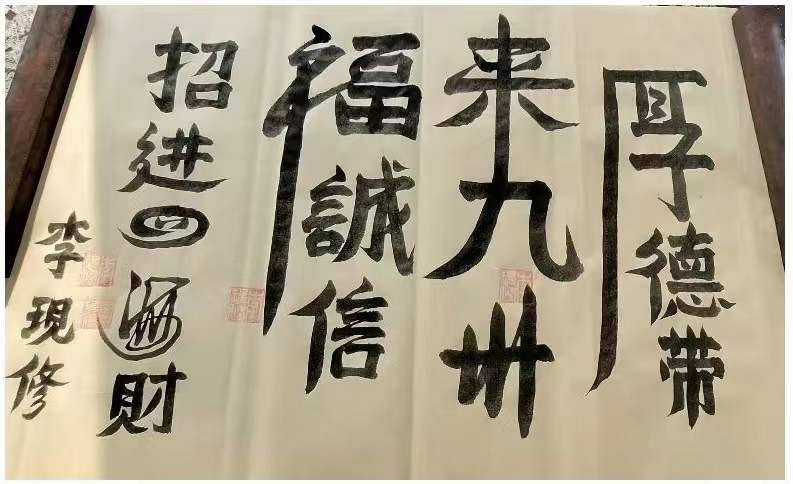 厚德带
来九州
福誠信
招进四海财
李現修